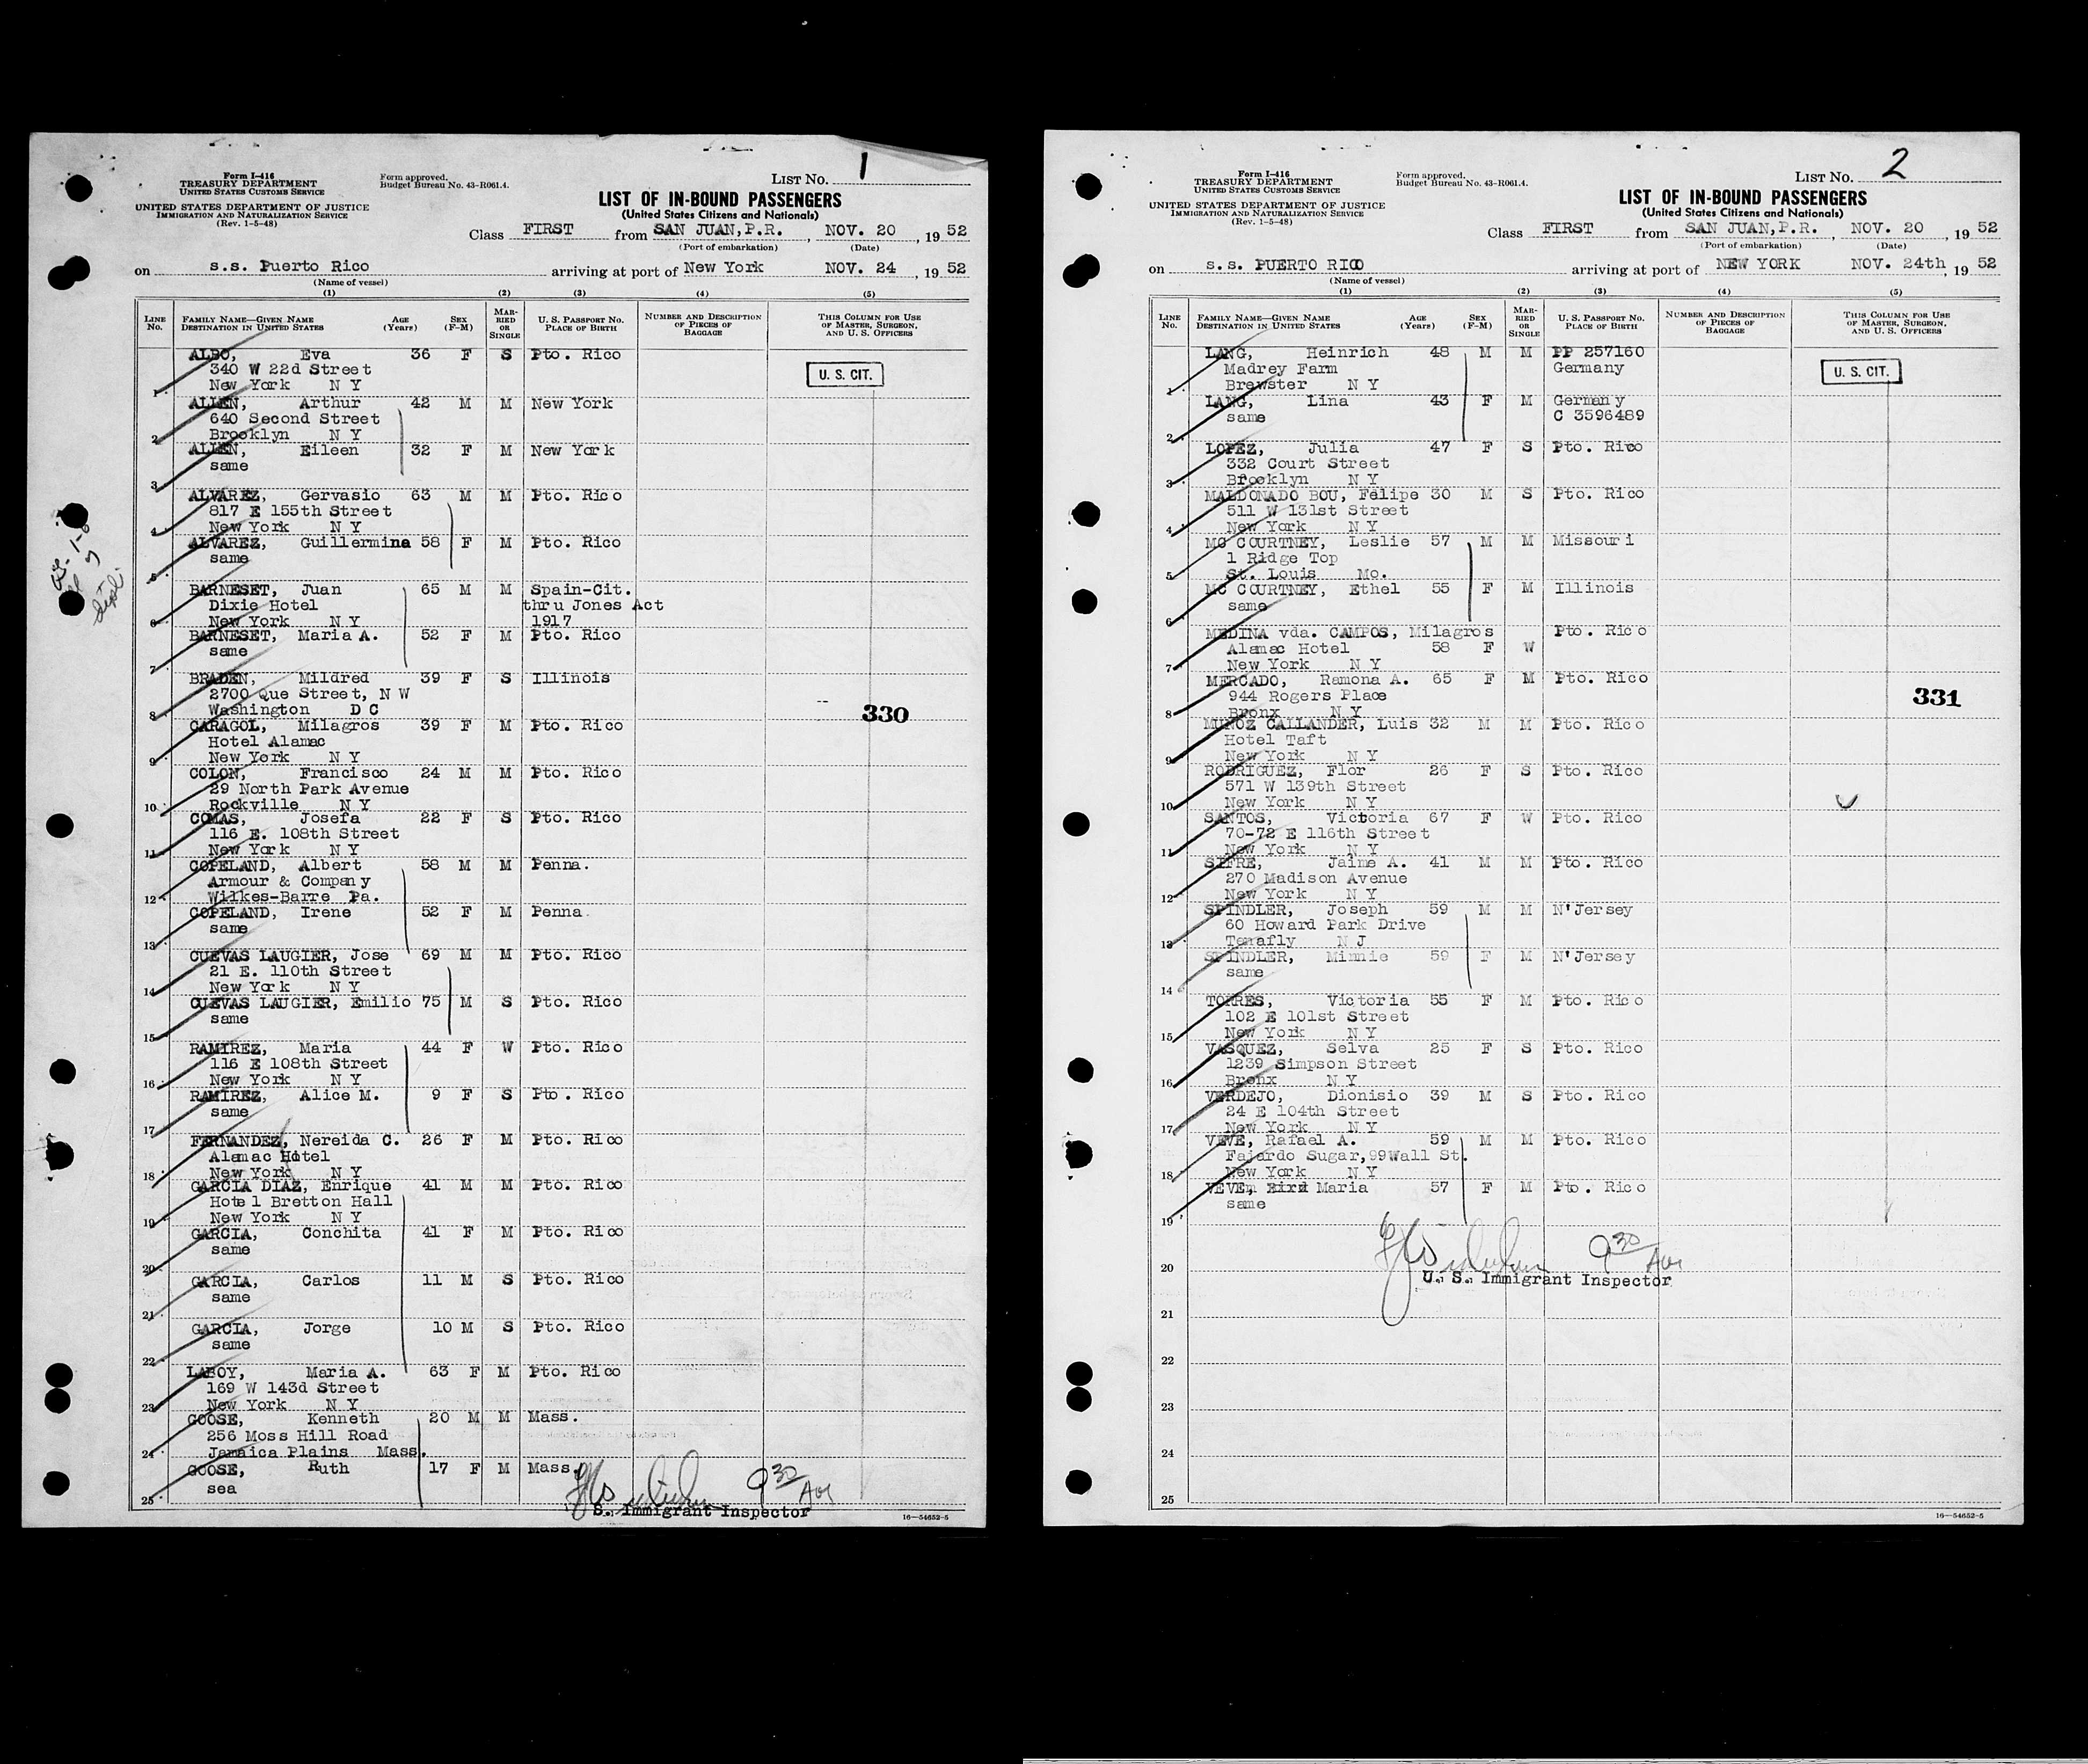 Form I-416
TREASURY DEPARTMENT
UNITED STATES CUSTOMS SERVICE
UNITED STATES DEPARTMENT OF JUSTICE
IMMIGRATION AND NATURALIZATION SERVICE
(Rev. 1-5-48)
Form approved.
Budget Bureau No. 43-R061.4.
LIST NO. 1
LIST OF IN-BOUND PASSENGERS
(United States Citizens and Nationals)
Class FIRST from SAN JUAN, P.R., NOV. 20, 1952
(Port of embarkation) (Date)
on s.s. Puerto Rico arriving at port of New York NOV. 24, 1952
(Name of vessel)
(1) (2) (3) (4) (5)
LINE No. FAMILY NAME—GIVEN NAME DESTINATION IN UNITED STATES AGE (Years) SEX (F-M) MARRIED OR SINGLE U. S. PASSPORT NO. PLACE OF BIRTH NUMBER AND DESCRIPTION OF PIECES OF BAGGAGE THIS COLUMN FOR USE OF MASTER, SURGEON, AND U. S. OFFICERS
ALBO, Eva 36 F S Pto. Rico
340 W 22d Street
U. S. CIT.
1 New York N Y
ALLEN, Arthur 42 M M New York
640 Second Street
2 Brooklyn N Y
ALLEN, Eileen 32 F M New York
same
3
ALVAREZ, Gervasio 63 M M Pto. Rico
817 E 155th Street
4 New York N Y
ALVAREZ, Guillermina 58 F M Pto. Rico
same
5
BARNESET, Juan 65 M M Spain-Cit.
Dixie Hotel thru Jones Act
6 New York N Y 1917
BARNESET, Maria A. 52 F M Pto. Rico
same
7
BRADEN, Mildred 39 F S Illinois
2700 Que Street, N W
8 Washington D C
330
CARAGOL, Milagros 39 F M Pto. Rico
Hotel Alamac
9 New York N Y
COLON, Francisco 24 M M Pto. Rico
29 North Park Avenue
10 Rockville N Y
COMAS, Josefa 22 F S Pto. Rico
116 E. 108th Street
11 New York N Y
COPELAND, Albert 58 M M Penna.
Armour & Company
12 Wilkes-Barre Pa.
COPELAND, Irene 52 F M Penna.
same
13
CUEVAS LAUGIER, Jose 69 M M Pto. Rico
21 E. 110th Street
14 New York N Y
CUEVAS LAUGIER, Emilio 75 M S Pto. Rico
same
15
RAMIREZ, Maria 44 F W Pto. Rico
116 E 108th Street
16 New York N Y
RAMIREZ, Alice M. 9 F S Pto. Rico
same
17
FERNANDEZ, Nereida C. 26 F M Pto. Rico
Alamac Hotel
18 New York N Y
GARCIA DIAZ, Enrique 41 M M Pto. Rico
Hotel Bretton Hall
19 New York N Y
GARCIA, Conchita 41 F M Pto. Rico
same
20
GARCIA, Carlos 11 M S Pto. Rico
same
21
GARCIA, Jorge 10 M S Pto. Rico
same
22
LABOY, Maria A. 63 F M Pto. Rico
169 W 143d Street
23 New York N Y
GOOSE, Kenneth 20 M M Mass.
256 Moss Hill Road
24 Jamaica Plains Mass.
GOOSE, Ruth 17 F M Mass.
sea
25
9 30
S. Immigrant Inspector
16—54652-5
Form I-416
TREASURY DEPARTMENT
UNITED STATES CUSTOMS SERVICE
UNITED STATES DEPARTMENT OF JUSTICE
IMMIGRATION AND NATURALIZATION SERVICE
(Rev. 1-5-48)
Form approved.
Budget Bureau No. 43-R061.4.
LIST NO. 2
LIST OF IN-BOUND PASSENGERS
(United States Citizens and Nationals)
Class FIRST from SAN JUAN, P.R., NOV. 20, 1952
(Port of embarkation) (Date)
on s.s. PUERTO RICO arriving at port of NEW YORK NOV. 24th, 1952
(Name of vessel)
(1) (2) (3) (4) (5)
LINE No. FAMILY NAME—GIVEN NAME DESTINATION IN UNITED STATES AGE (Years) SEX (F-M) MARRIED OR SINGLE U. S. PASSPORT NO. PLACE OF BIRTH NUMBER AND DESCRIPTION OF PIECES OF BAGGAGE THIS COLUMN FOR USE OF MASTER, SURGEON, AND U. S. OFFICERS
LANG, Heinrich 48 M M PP 257160
Madrey Farm Germany
U. S. CIT.
1 Brewster N Y
LANG, Lina 43 F M Germany
same C 3596489
2
LOPEZ, Julia 47 F S Pto. Rico
332 Court Street
3 Brooklyn N Y
MALDONADO BOU, Felipe 30 M S Pto. Rico
511 W 131st Street
4 New York N Y
MC COURTNEY, Leslie 57 M M Missouri
1 Ridge Top
5 St. Louis Mo.
MC COURTNEY, Ethel 55 F M Illinois
same
6
MEDINA vda. CAMPOS, Milagros Pto. Rico
Alamac Hotel 58 F W
7 New York N Y
MERCADO, Ramona A. 65 F M Pto. Rico
944 Rogers Place
331
8 Bronx N Y
MUNOZ CALLANDER, Luis 32 M M Pto. Rico
Hotel Taft
9 New York N Y
RODRIGUEZ, Flor 26 F S Pto. Rico
571 W 139th Street
10 New York N Y
SANTOS, Victoria 67 F W Pto. Rico
70-72 E 116th Street
11 New York N Y
SIFRE, Jaime A. 41 M M Pto. Rico
270 Madison Avenue
12 New York N Y
SPINDLER, Joseph 59 M M N'Jersey
60 Howard Park Drive
13 Tenafly N J
SPINDLER, Minnie 59 F M N'Jersey
same
14
TORRES, Victoria 55 F M Pto. Rico
102 E 101st Street
15 New York N Y
VASQUEZ, Selva 25 F S Pto. Rico
1239 Simpson Street
16 Bronx N Y
VERDEJO, Dionisio 39 M S Pto. Rico
24 E 104th Street
17 New York N Y
VEVE, Rafael A. 59 M M Pto. Rico
Fajardo Sugar, 99 Wall St.
18 New York N Y
VEVE, Maria 57 F M Pto. Rico
same
19
9 30
20
U. S. Immigrant Inspector
21
22
23
24
25
16—54652-5